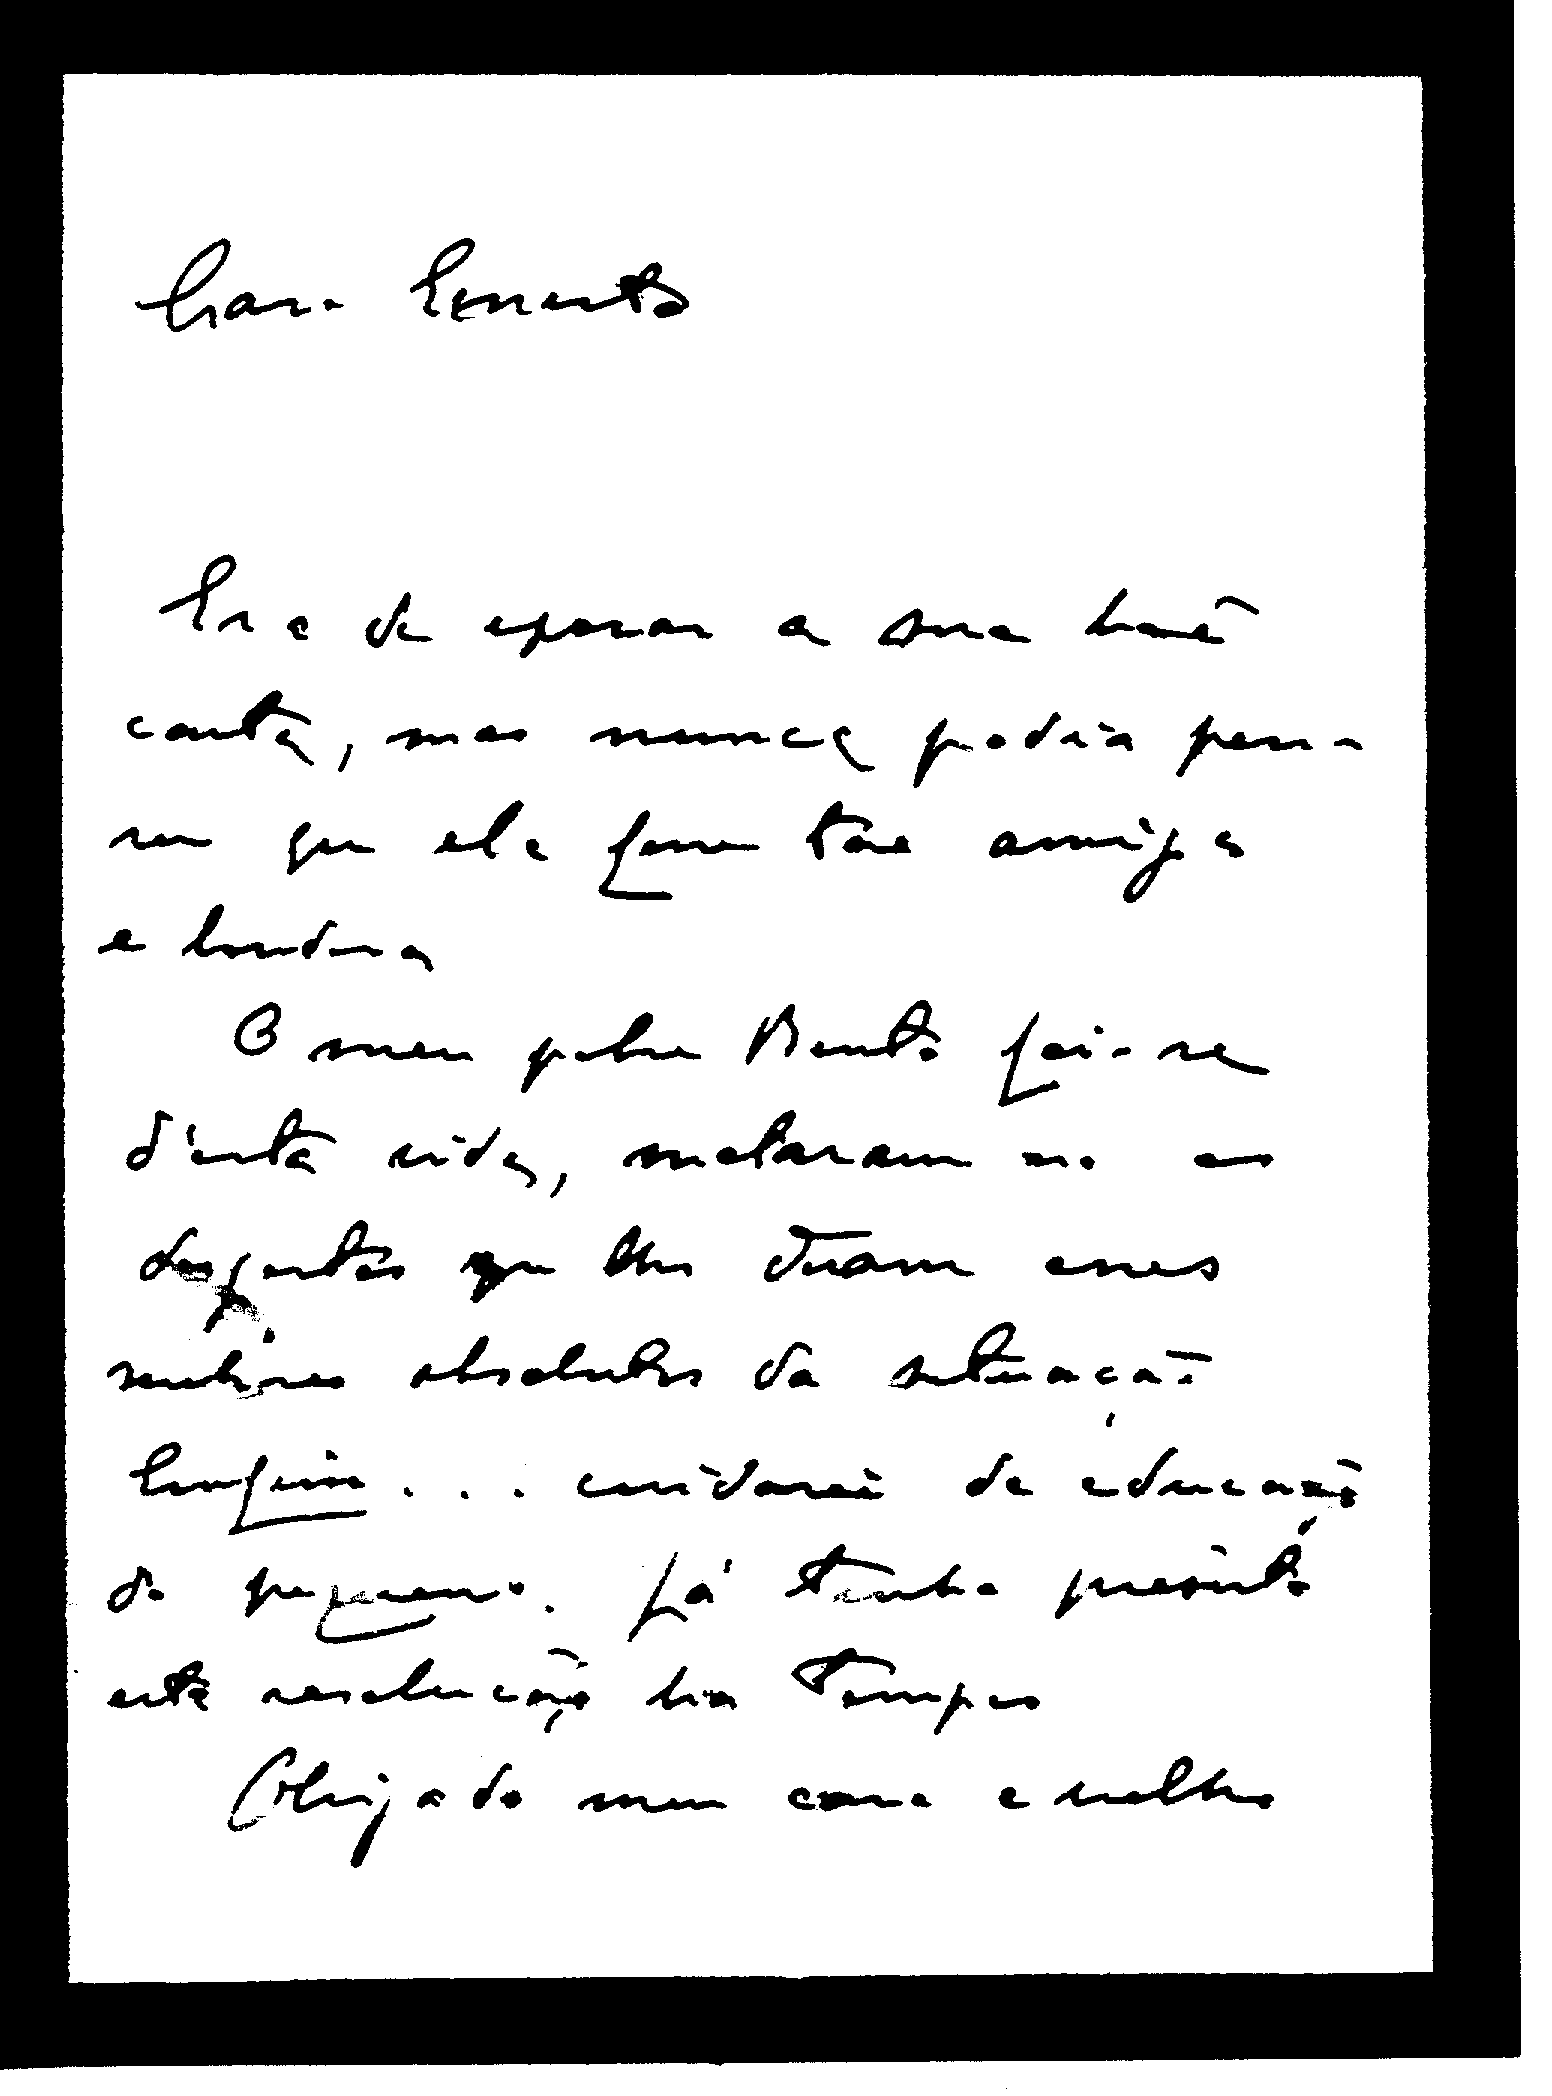 Caro Ernesto
Era de esperar a sua boa
carta, mas nunca podia pensa-
ra que ela fosse tão amiga
e bondosa
O meu pobre Bento foi-se
d'esta vida, mataram-no os
desgostos que lhe deram esses
senhores absolutos da situação
Emfim... cuidarei da educação
do pequeno. Já tinha presente
esta resolução ha tempos
Obrigado meu caro e velho